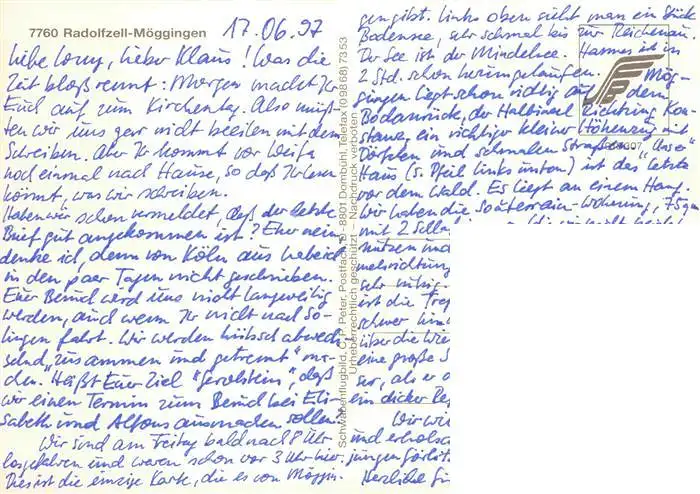 7760 Radolfzell-Möggingen
17.06.97
Liebe Lony, lieber Klaus! Was die
Zeit bloß rennt: Morgen macht Ihr
Euch auf zum Kirchentag. Also müß-
ten wir uns gar nicht beeilen mit dem
Schreiben. Aber Ihr kommt vor
noch einmal nach Hause, so daß Ihr lesen
könnt, was wir schreiben.
Haben wir schon vermeldet, daß der letzte
Brief gut angekommen ist? Eher nein
denke ich, denn von Köln aus habe ich
in den paar Tagen nicht geschrieben.
Euer Besuch wird uns nicht langweilig
werden, auch wenn Ihr nicht nach So-
lingen fahrt. Wir werden hübsch abwech
selnd "zusammen und getrennt"
den. Heißt Euer Ziel "Gerolstein", daß
wir einen Termin zum Besuch bei Eli-
sabeth und Alfons ausmachen sollen?
Wir sind am Freitag bald nach 8 Uhr
losgefahren und waren schon vor 3 Uhr hier.
Dies ist die einzige Karte, die es von Möggin-
Schwabenflugbild, C. P. Peter, Postfach, D - 8801 Dombühl, Telefax (0 98 68) 73 53
Urheberrechtlich geschützt – Nachdruck verboten
gen gibt. Links oben sieht man ein Stück
Bodensee, sehr schmal bis zur Reichenau.
Der See ist der Mindelsee. Hannes ist in
2 Std. schon herumgelaufen. Mög-
gingen liegt schon richtig auf dem
Bodanrück, der Halbinsel Richtung Kon-
stanz, ein richtiger kleiner Höhenzug mit
Dörfchen und schmalen Straßen. "Unser"
Haus (s. Pfeil links unten) ist das letzte
vor dem Wald. Es liegt an einem Hang.
Wir haben die Souterrain-Wohnung, 75 qm
mit 2
nutzen und
sehr ruhig.
ist die
schwer
über die
eine große
ser, als er
ein dicker
Wir
und
jungen
Herzliche